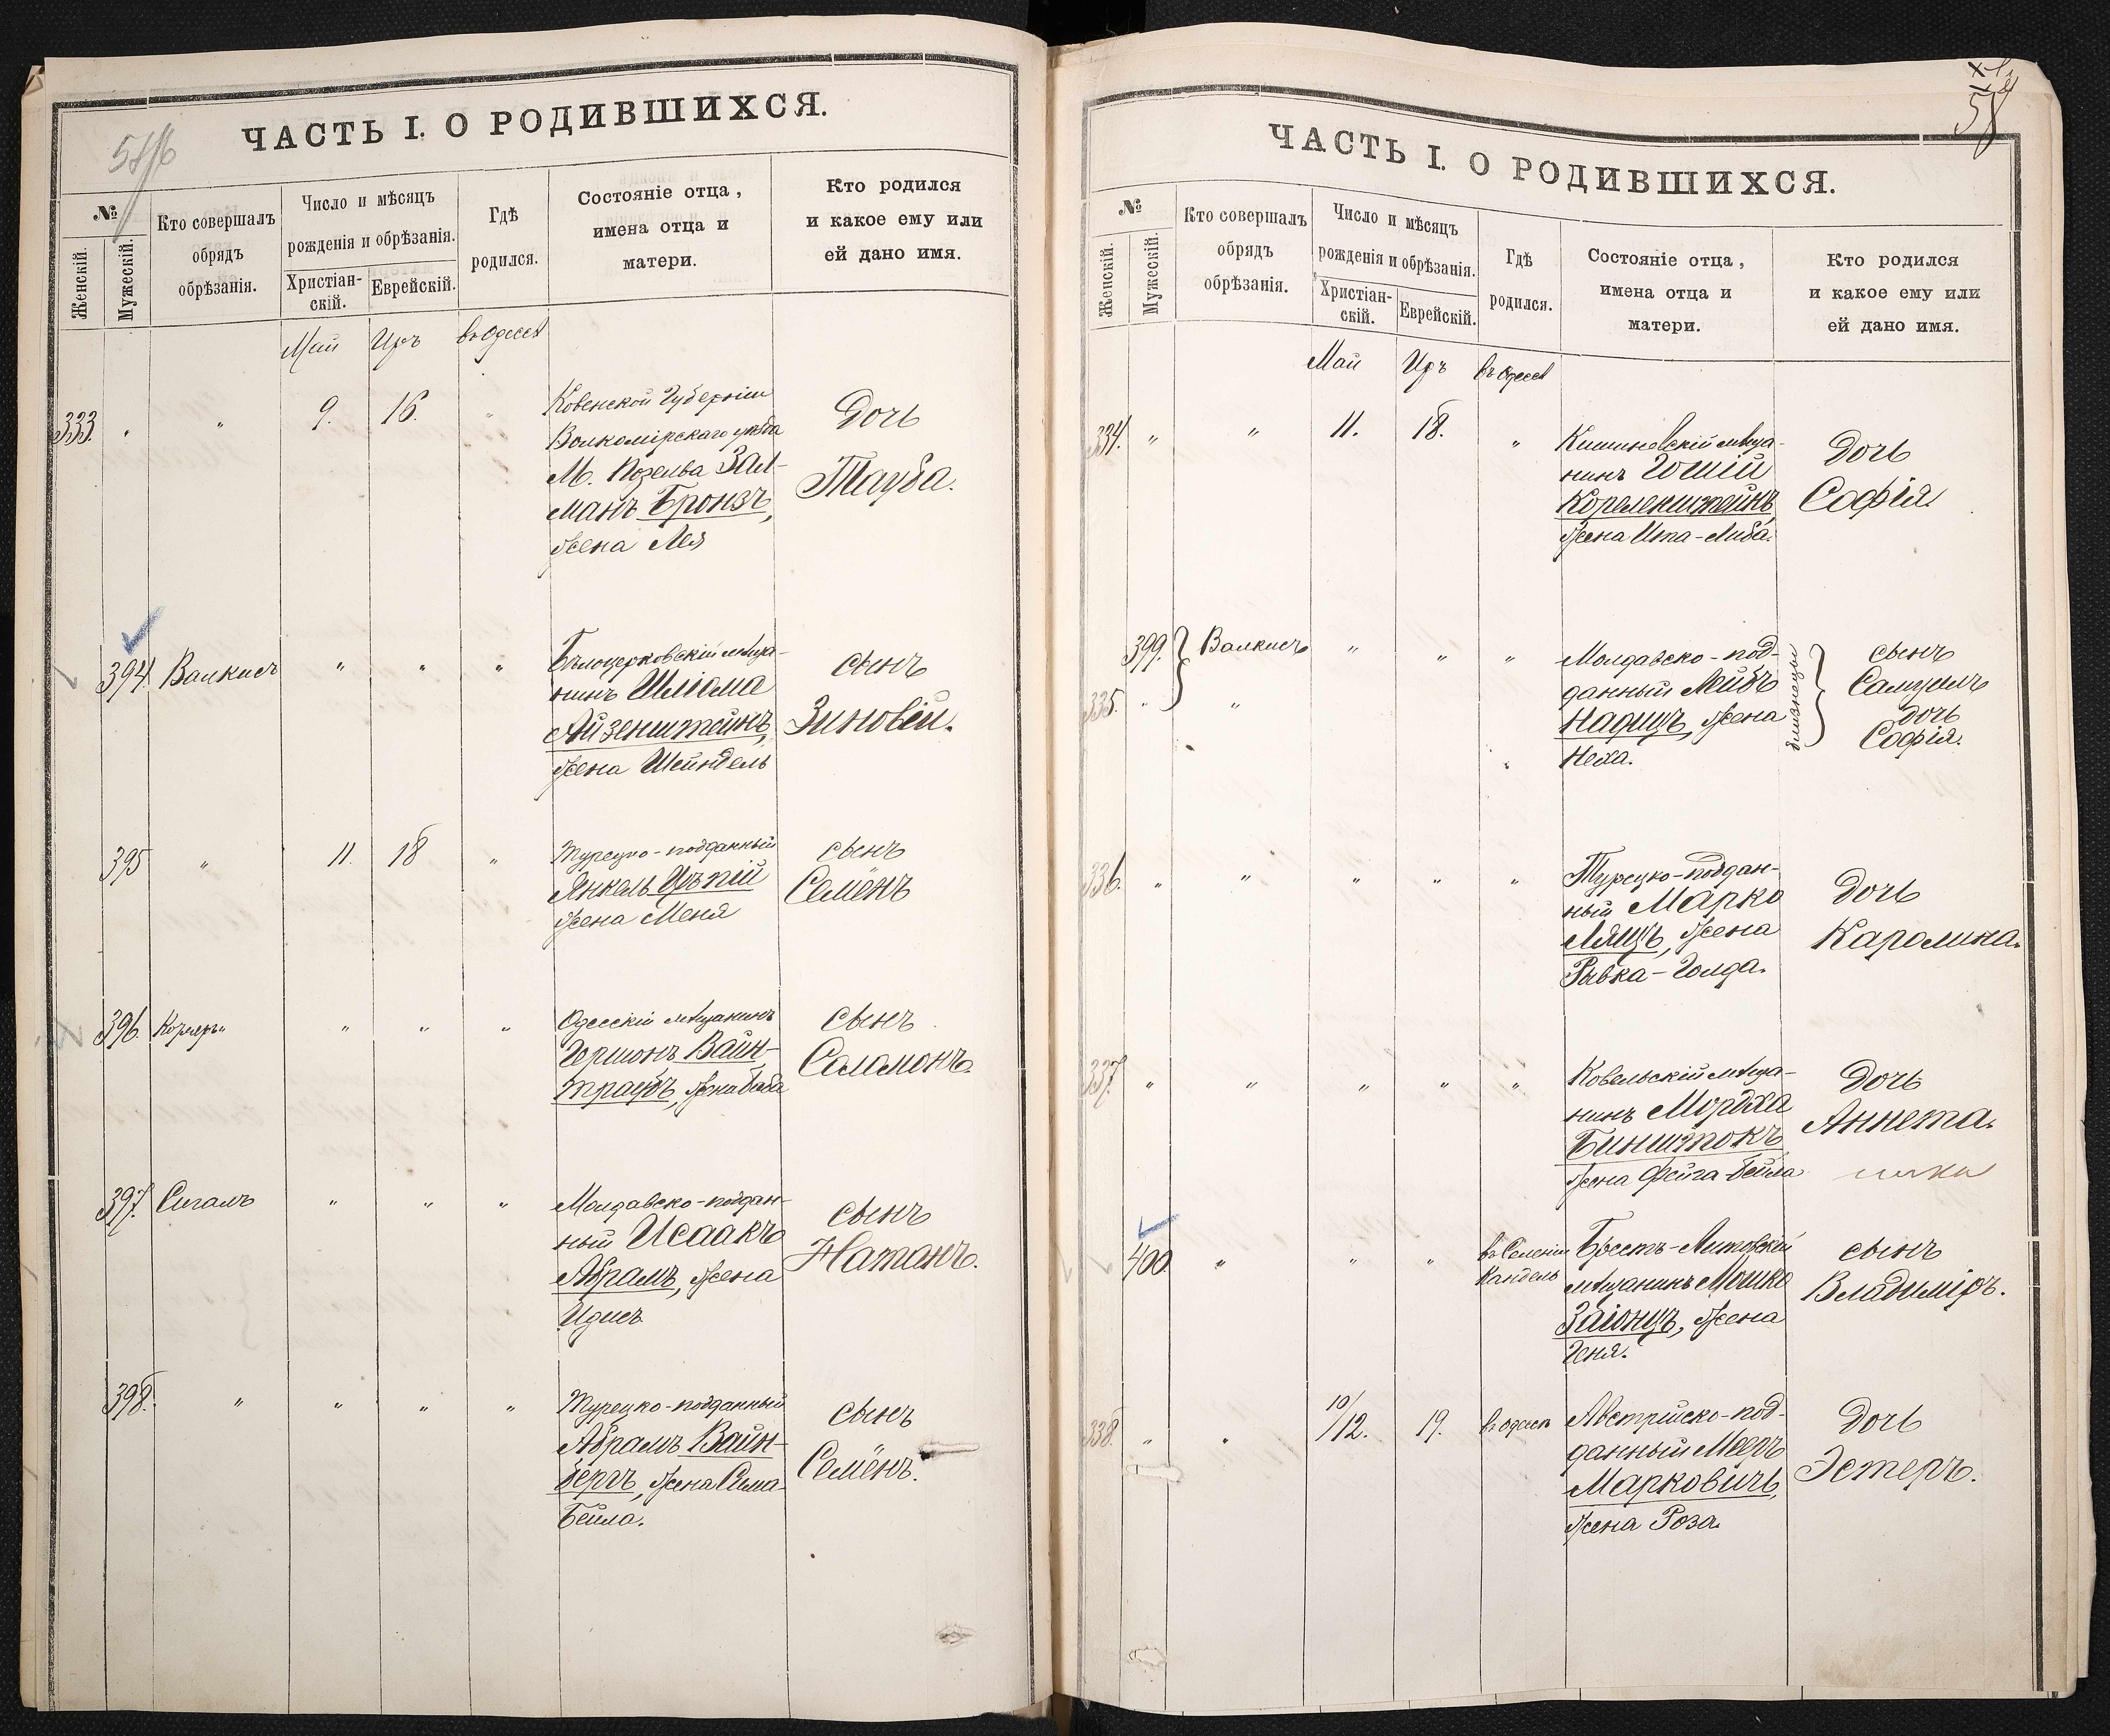 ЧАСТЬ I. О РОДИВШИХСЯ.
№
Женскій.
Мужескій.
Кто совершалъ
обрядъ
обрѣзанія.
Число и мѣсяцъ
рожденія и обрѣзанія.
Христіан-
скій.
Еврейскій.
Гдѣ
родился.
Состояніе отца,
имена отца и
матери.
Кто родился
и какое ему или
ей дано имя.
Май Иръ въ Одессѣ
333. " " 9. 16. "
Ковенской Губерніи
Волкомірскаго уѣзда
М. Козельва Зал-
манъ Бронзъ,
жена Лея
Дочь
Тауба.
394. Валкисъ " " "
Бѣлоцерковскій мѣща-
нинъ Шліома
Айзенштейнъ,
жена Шейндель
сынъ
Зиновій.
395 " 11. 18 "
Турецко-подданный
Янкель
жена Меня
сынъ
Семёнъ
396. " " "
Одесскій мѣщанинъ
Гершонъ Вайн-
траубъ, жена Баба
сынъ
Соломонъ.
397. Сигалъ " " "
Молдавско-поддан-
ный Исаакъ
Абрамъ, жена
Идисъ
сынъ
Натанъ.
398. " " " "
Турецко-подданный
Абрамъ Вайн-
бергъ, жена Сима-
Бейла.
сынъ
Семёнъ.
58
ЧАСТЬ I. О РОДИВШИХСЯ.
№
Женскій.
Мужескій.
Кто совершалъ
обрядъ
обрѣзанія.
Число и мѣсяцъ
рожденія и обрѣзанія.
Христіан-
скій.
Еврейскій.
Гдѣ
родился.
Состояніе отца,
имена отца и
матери.
Кто родился
и какое ему или
ей дано имя.
Май Иръ въ Одессѣ
334. " " 11. 18. "
Кишиневскій мѣща-
нинъ Гошій
Коренштейнъ
жена Ита-Люба.
Дочь
Софія.
399. Валкисъ " " "
335. " "
Молдавско-под-
данный Лейбъ
Надицъ, жена
Неха.
близнецы
сынъ
Самуилъ
дочь
Софія.
336. " " " " "
Турецко-поддан-
ный Марко
Ляицъ, жена
Рывка-Голда.
Дочь
Каролина.
337. " " " " "
Ковельскій мѣща-
нинъ Мордха
Бинштокъ
жена Фейга-Бейла
Дочь
Аннета.
400. " " "
въ Селеніи
Кандель
Брестъ-Литовскій
мѣщанинъ Мошко
Заіонцъ, жена
Геня.
сынъ
Владиміръ.
338. " " 10/12. 19. въ Одессѣ
Австрійско-под-
данный Мееръ
Марковичъ,
жена Роза.
Дочь
Эстеръ.